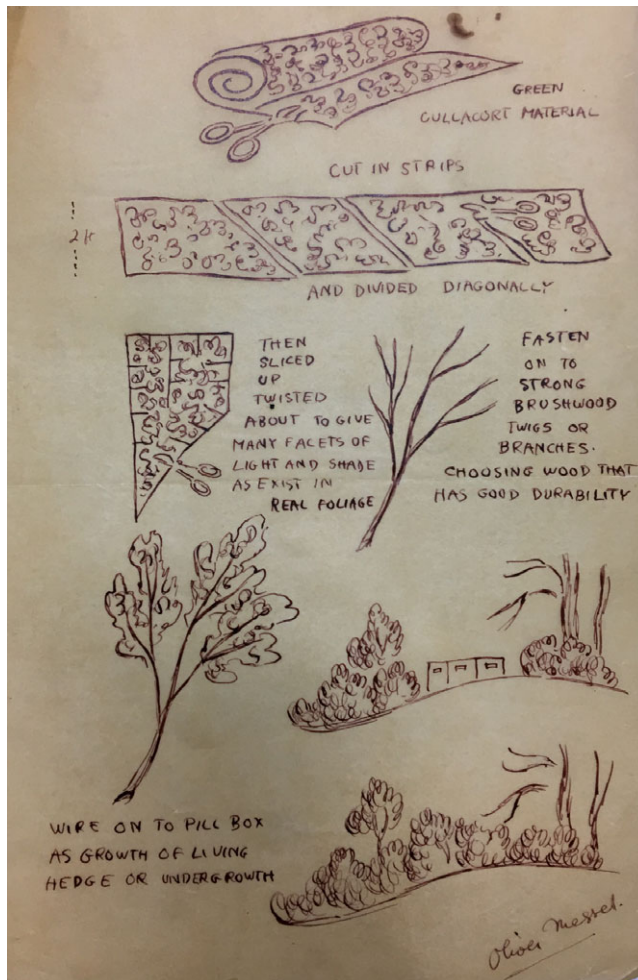 GREEN
CULLACORT MATERIAL
CUT IN STRIPS
AND DIVIDED DIAGONALLY
THEN
SLICED
UP
TWISTED
ABOUT TO GIVE
MANY FACETS OF
LIGHT AND SHADE
AS EXIST IN
REAL FOLIAGE
FASTEN
ON TO
STRONG
BRUSHWOOD
TWIGS OR
BRANCHES.
CHOOSING WOOD THAT
HAS GOOD DURABILITY
WIRE ON TO PILL BOX
AS GROWTH OF LIVING
HEDGE OR UNDERGROWTH
Oliver Messel.